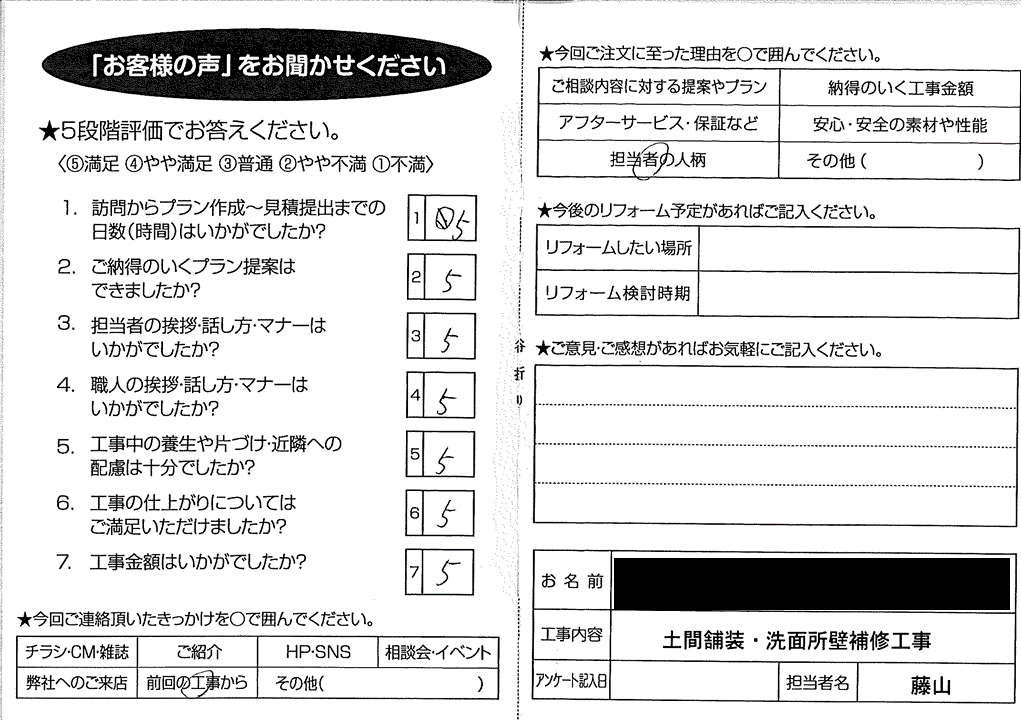 「お客様の声」をお聞かせください
★5段階評価でお答えください。
〈⑤満足 ④やや満足 ③普通 ②やや不満 ①不満〉
1. 訪問からプラン作成～見積提出までの
日数(時間)はいかがでしたか?
1 5
2. ご納得のいくプラン提案は
できましたか?
2 5
3. 担当者の挨拶・話し方・マナーは
いかがでしたか?
3 5
4. 職人の挨拶・話し方・マナーは
いかがでしたか?
4 5
5. 工事中の養生や片づけ・近隣への
配慮は十分でしたか?
5 5
6. 工事の仕上がりについては
ご満足いただけましたか?
6 5
7. 工事金額はいかがでしたか?
7 5
★今回ご連絡頂いたきっかけを○で囲んでください。
チラシ・CM・雑誌 ご紹介 HP・SNS 相談会・イベント
弊社へのご来店 前回の工事から その他( )
谷折り
★今回ご注文に至った理由を○で囲んでください。
ご相談内容に対する提案やプラン 納得のいく工事金額
アフターサービス・保証など 安心・安全の素材や性能
担当者の人柄 その他( )
★今後のリフォーム予定があればご記入ください。
リフォームしたい場所
リフォーム検討時期
★ご意見・ご感想があればお気軽にご記入ください。
お名前
工事内容 土間舗装・洗面所壁補修工事
アンケート記入日 担当者名 藤山